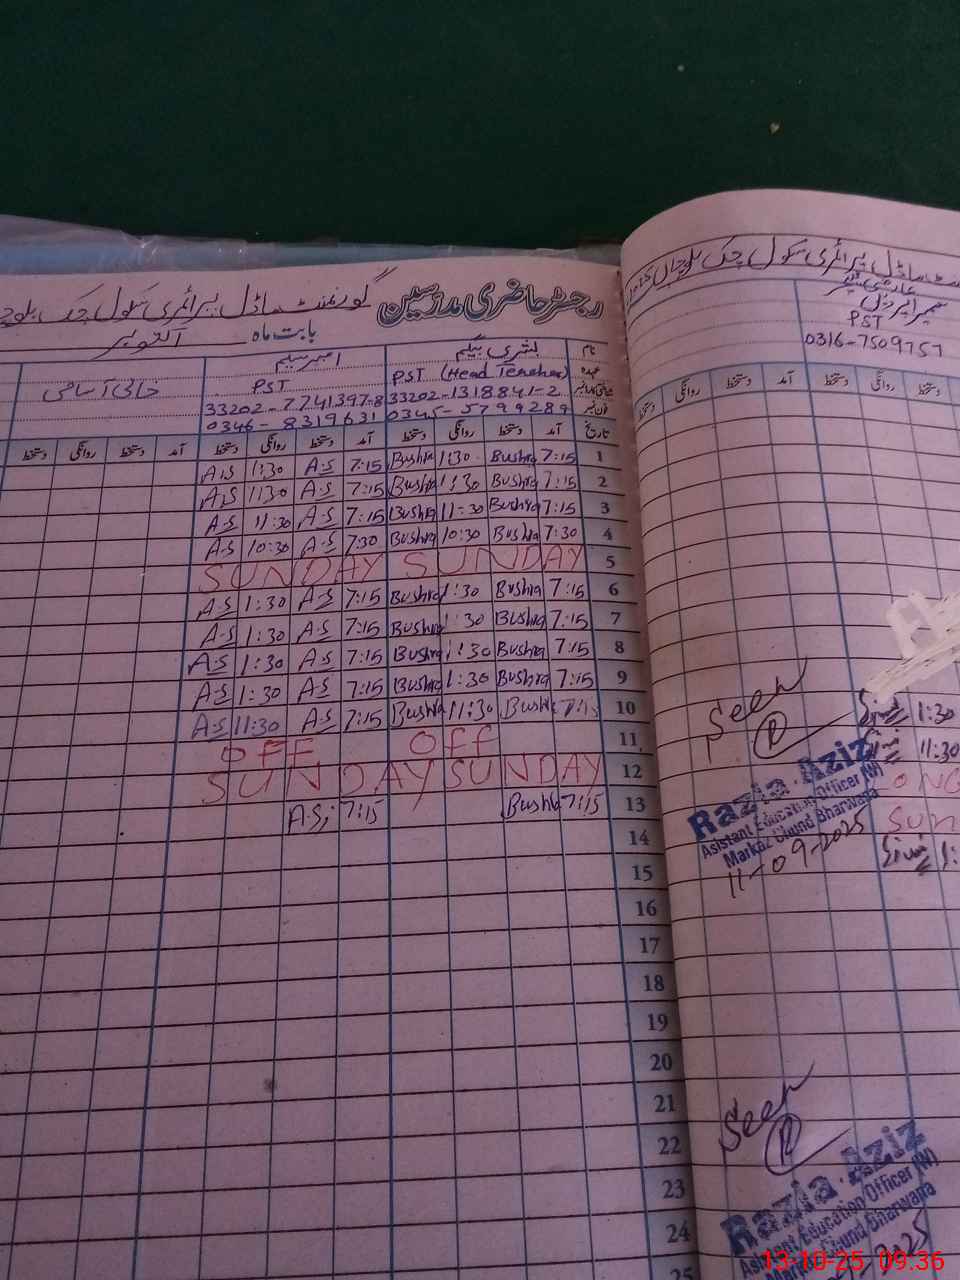 رجسٹر حاضری مدرسین گورنمنٹ ماڈل پرائمری سکول چک
بابت ماہ اکتوبر
نام بشری بیگم
عہدہ PST (Head Teacher) PST خالی آسامی
33202-1318841-2 33202-7741397-8
فون نمبر 0345-5799289 0346-8319631
تاریخ آمد دستخط روانگی دستخط آمد دستخط روانگی دستخط آمد دستخط روانگی دستخط
1 7:15 Bushra 1:30 Bushra 7:15 A.S 1:30 A.S
2 7:15 Bushra 1:30 Bushra 7:15 A.S 1:30 A.S
3 7:15 Bushra 11:30 Bushra 7:15 A.S 11:30 A.S
4 7:30 Bushra 10:30 Bushra 7:30 A.S 10:30 A.S
5 SUNDAY SUNDAY
6 7:15 Bushra 1:30 Bushra 7:15 A.S 1:30 A.S
7 7:15 Bushra 1:30 Bushra 7:15 A.S 1:30 A.S
8 7:15 Bushra 1:30 Bushra 7:15 A.S 1:30 A.S
9 7:15 Bushra 1:30 Bushra 7:15 A.S 1:30 A.S
10 7:15 Bushra 11:30 Bushra 7:15 A.S 11:30 A.S
11 OFF OFF
12 SUNDAY SUNDAY
13 7:15 Bushra 7:15 A.S
14
15
16
17
18
19
20
21
22
23
24
25
ماڈل پرائمری سکول چک
PST
0316-7509757
دستخط روانگی دستخط آمد دستخط روانگی دستخط
1:30
11:30
SUN
Seen
Razia Aziz
Asistant Education Officer (W)
Markaz Chund Bharwana
11-09-2025
Seen
Razia Aziz
Asistant Education Officer (W)
Chund Bharwana
2025
13-10-25 09:36